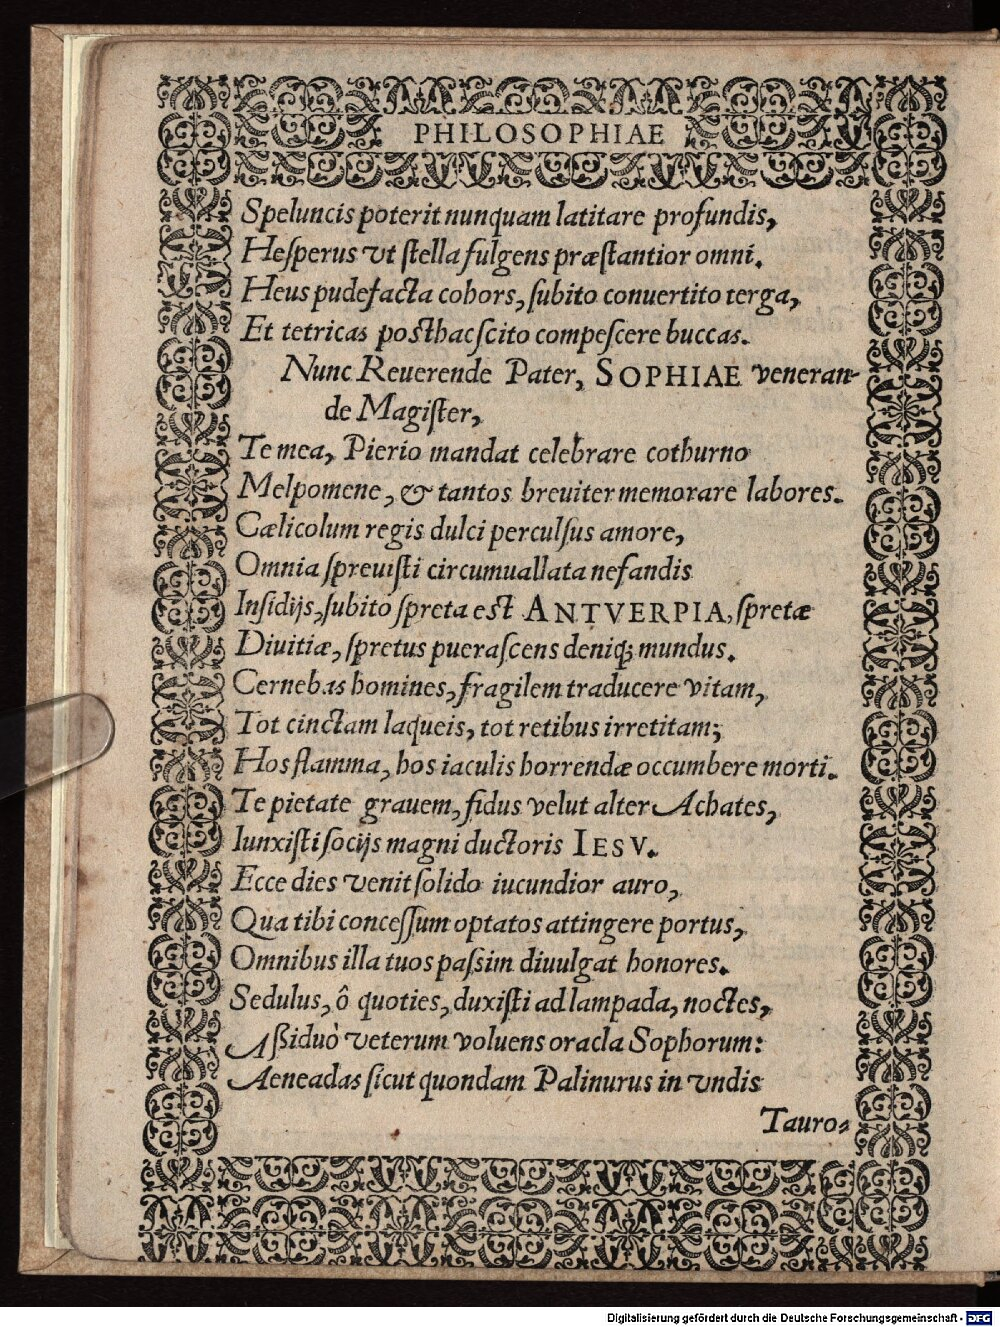 PHILOSOPHIAE
Speluncis poterit nunquam latitare profundis,
Heſperus vt ſtella fulgens præſtantior omni.
Heus pudefacta cohors, ſubito conuertito terga,
Et tetricas posthac ſcito compeſcere buccas.
Nunc Reuerende Pater, SOPHIAE veneran-
de Magiſter,
Te mea, Pierio mandat celebrare cothurno
Melpomene, & tantos breuiter memorare labores.
Cælicolum regis dulci perculſus amore,
Omnia ſpreuiſti circumuallata nefandis
Inſidijs, ſubito ſpreta est ANTVERPIA, ſpretæ
Diuitiæ, ſpretus pueraſcens deniq; mundus.
Cernebas homines, fragilem traducere vitam,
Tot cinctam laqueis, tot retibus irretitam;
Hos flamma, hos iaculis horrendæ occumbere morti.
Te pietate grauem, fidus velut alter Achates,
Iunxiſti ſocijs magni ductoris IESV.
Ecce dies venit ſolido iucundior auro,
Qua tibi conceſſum optatos attingere portus,
Omnibus illa tuos paſsim diuulgat honores.
Sedulus, ô quoties, duxiſti ad lampada, noctes,
Aßiduò veterum voluens oracla Sophorum:
Aeneadas ſicut quondam Palinurus in vndis
Tauro-
Digitalisierung gefördert durch die Deutsche Forschungsgemeinschaft - DFG